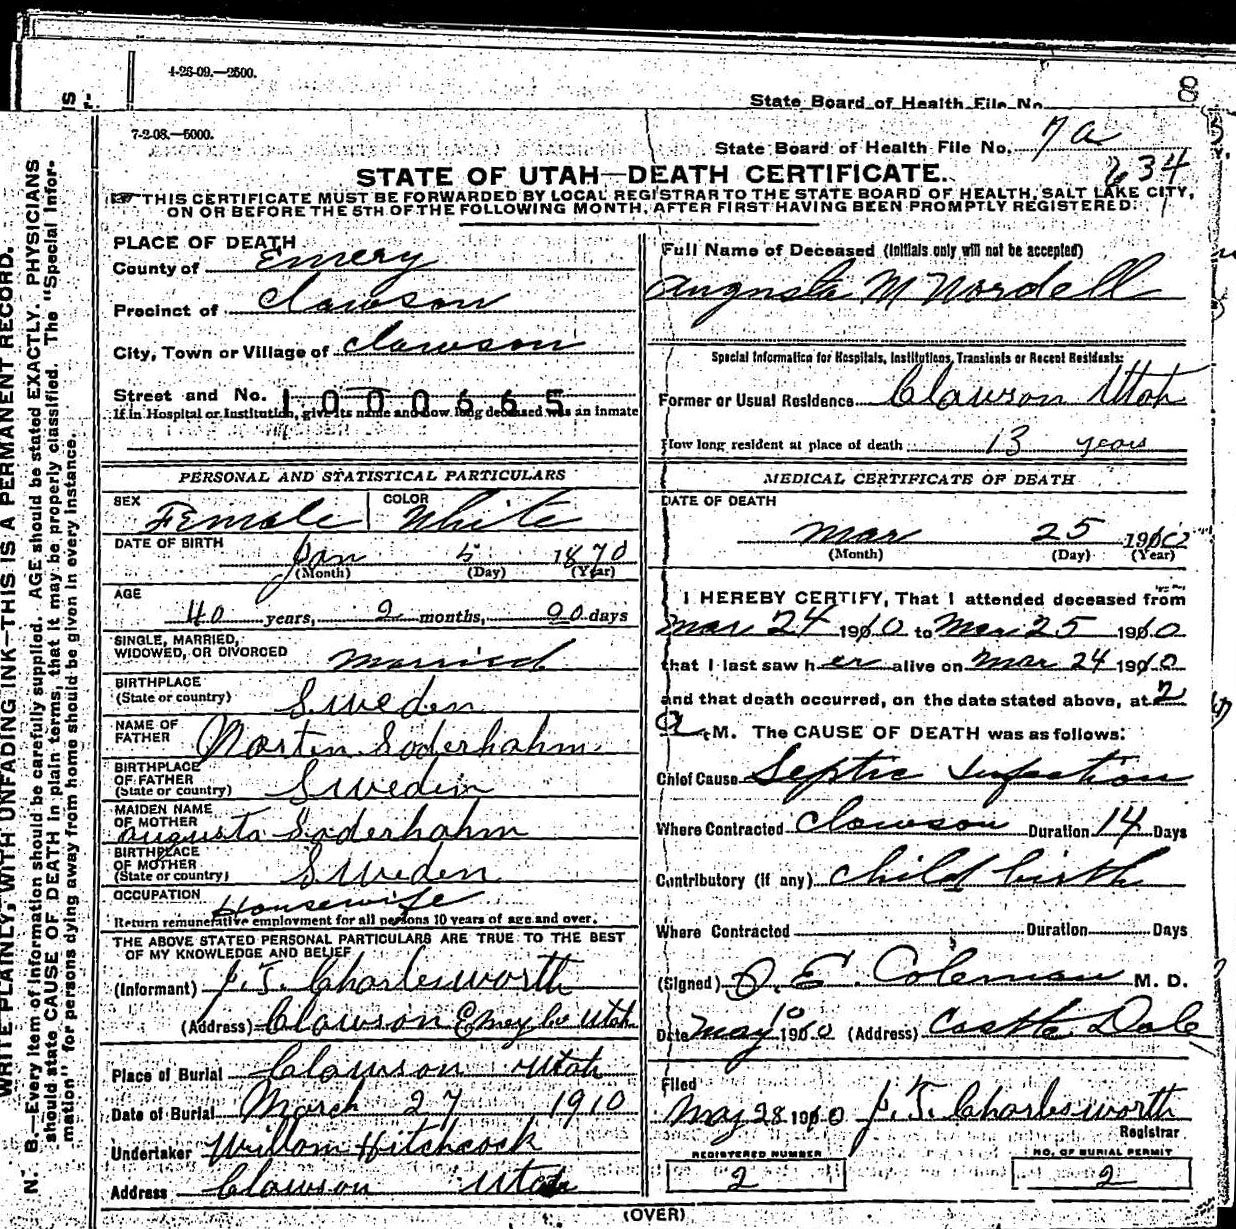 4-26-09.—2500.
8
State Board of Health File No.
7-2-08.—5000.
State Board of Health File No. 7a
634
STATE OF UTAH—DEATH CERTIFICATE.
THIS CERTIFICATE MUST BE FORWARDED BY LOCAL REGISTRAR TO THE STATE BOARD OF HEALTH, SALT LAKE CITY,
ON OR BEFORE THE 5TH OF THE FOLLOWING MONTH, AFTER FIRST HAVING BEEN PROMPTLY REGISTERED.
WRITE PLAINLY, WITH UNFADING INK—THIS IS A PERMANENT RECORD.
N. B.—Every item of information should be carefully supplied. AGE should be stated EXACTLY. PHYSICIANS
should state CAUSE OF DEATH in plain terms, that it may be properly classified. The "Special Infor-
mation" for persons dying away from home should be given in every instance.
PLACE OF DEATH
County of Emery
Precinct of Clawson
City, Town or Village of Clawson
Street and No. 1000665
If in Hospital or Institution, give its name and how long deceased was an inmate
PERSONAL AND STATISTICAL PARTICULARS
SEX Female COLOR White
DATE OF BIRTH
Jan 5 1870
(Month) (Day) (Year)
AGE
40 years, 2 months, 20 days
SINGLE, MARRIED,
WIDOWED, OR DIVORCED Married
BIRTHPLACE
(State or country) Sweden
NAME OF
FATHER Morten Soderhahm
BIRTHPLACE
OF FATHER
(State or country) Sweden
MAIDEN NAME
OF MOTHER
Augusta Soderhahm
BIRTHPLACE
OF MOTHER
(State or country) Sweden
OCCUPATION Housewife
Return remunerative employment for all persons 10 years of age and over.
THE ABOVE STATED PERSONAL PARTICULARS ARE TRUE TO THE BEST
OF MY KNOWLEDGE AND BELIEF
(Informant) J. T. Charlesworth
(Address) Clawson Emery Co Utah
Place of Burial Clawson Utah
Date of Burial March 27 1910
Undertaker Willom Hitchcock
Address Clawson Utah
Full Name of Deceased (Initials only will not be accepted)
Augusta M Nordell
Special Information for Hospitals, Institutions, Transients or Recent Residents:
Former or Usual Residence Clawson Utah
How long resident at place of death 13 years
MEDICAL CERTIFICATE OF DEATH
DATE OF DEATH
Mar 25 1910
(Month) (Day) (Year)
I HEREBY CERTIFY, That I attended deceased from
Mar 24 1910 to Mar 25 1910
that I last saw her alive on Mar 24 1910
and that death occurred, on the date stated above, at 2
a.M. The CAUSE OF DEATH was as follows:
Chief Cause Septic Infection
Where Contracted Clawson Duration 14 Days
Contributory (if any) Child birth
Where Contracted Duration Days
(Signed) O. E. Coleman M. D.
Date May 1910 (Address) Castle Dale
Filed
May 28 1910 J. T. Charlesworth
Registrar
REGISTERED NUMBER
2
NO. OF BURIAL PERMIT
2
(OVER)